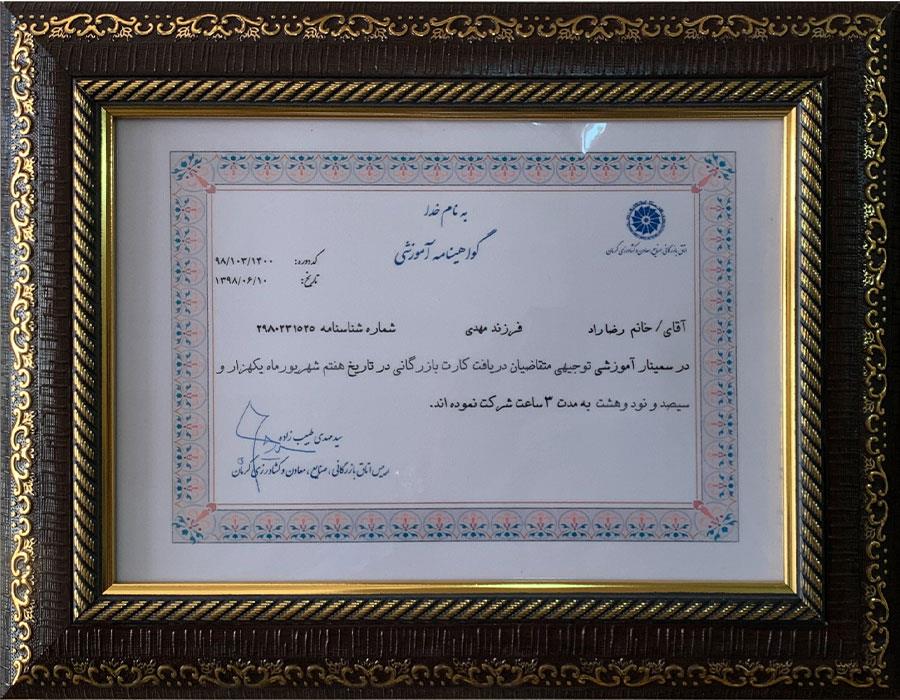 به نام خدا
اتاق بازرگانی، صنایع، معادن و کشاورزی کرمان
گواهینامه آموزشی
کد دوره: ۹۸/۱۰۳/۱۴۰۰
تاریخ: ۱۳۹۸/۰۶/۱۰
آقای/ خانم رضا راد فرزند مهدی شماره شناسنامه ۲۹۸۰۲۳۱۵۲۵
در سمینار آموزشی توجیهی متقاضیان دریافت کارت بازرگانی در تاریخ هفتم شهریور ماه یکهزار و
سیصد و نود و هشت به مدت ۳ ساعت شرکت نموده اند.
سید مهدی طبیب زاده
رییس اتاق بازرگانی، صنایع، معادن و کشاورزی کرمان